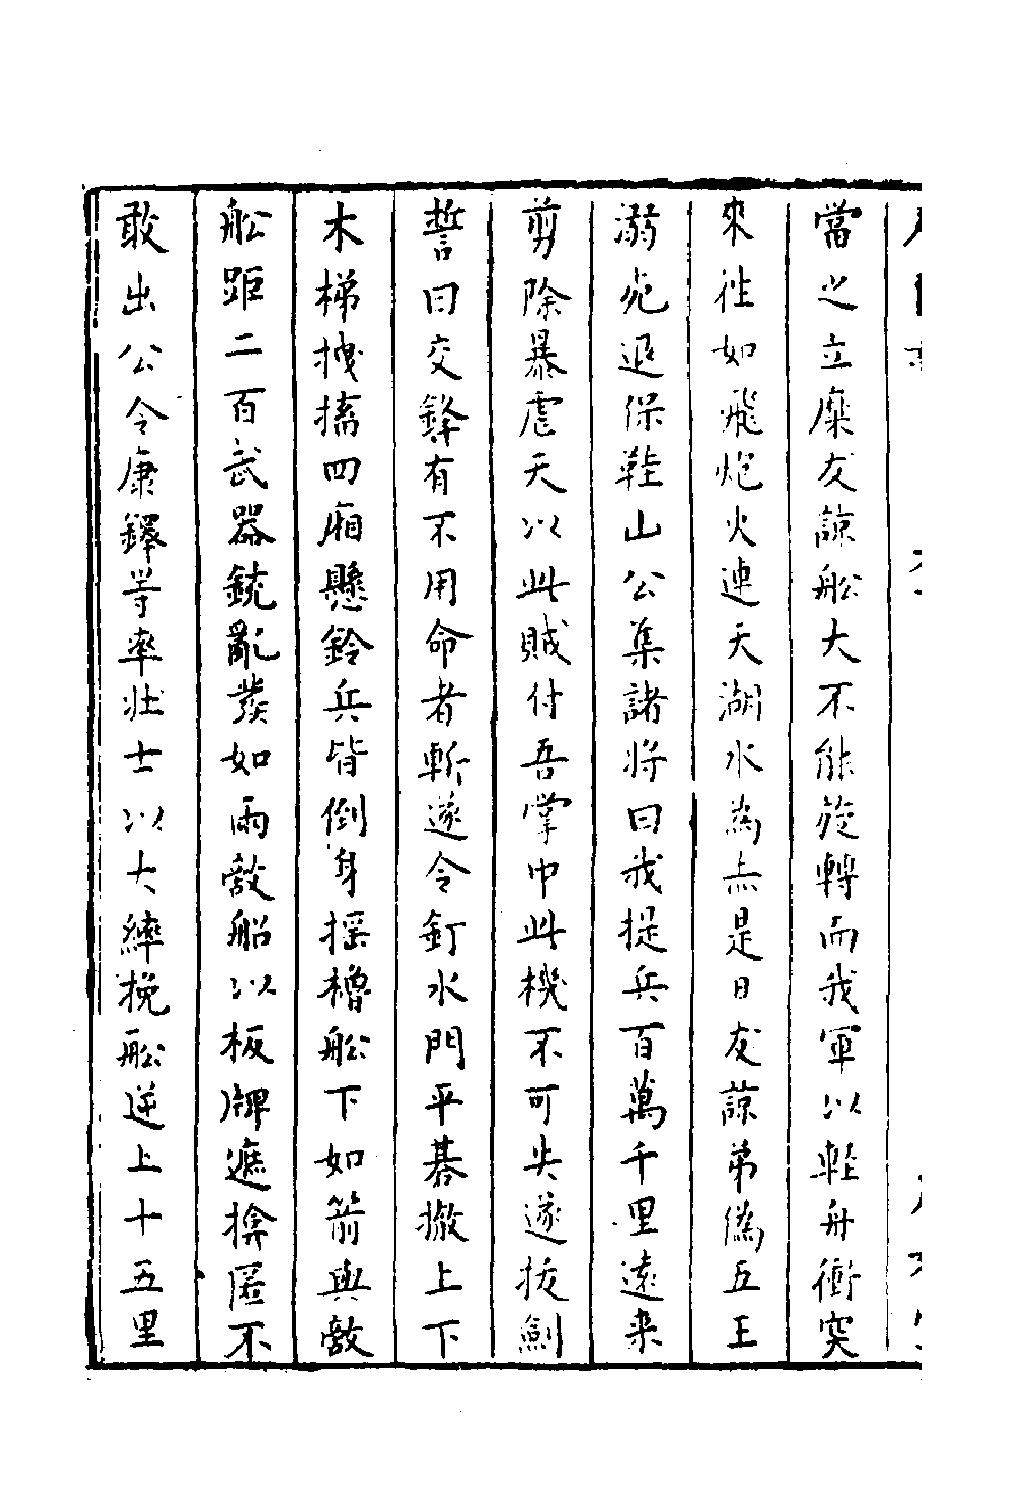 當之立糜友諒舩大不能旋轉而我軍以輕舟衝突
來徃如飛炮火連天湖水為焘是日友諒弟僞五王
溺死退保鞋山公集諸將曰我提兵百萬千里遠来
剪除暴虐天以此賊付吾掌中此機不可失遂拔劍
誓曰交鋒有不用命者斬遂令釘水門平碁撤上下
木梯拽㩦四廂懸鈴兵皆倒身揺櫓舩下如箭與敵
舩距二百武器銃亂發如雨敵船以板牌遮揜匿不
敢出公令康鐸等率壯士以大繂挽舩逆上十五里